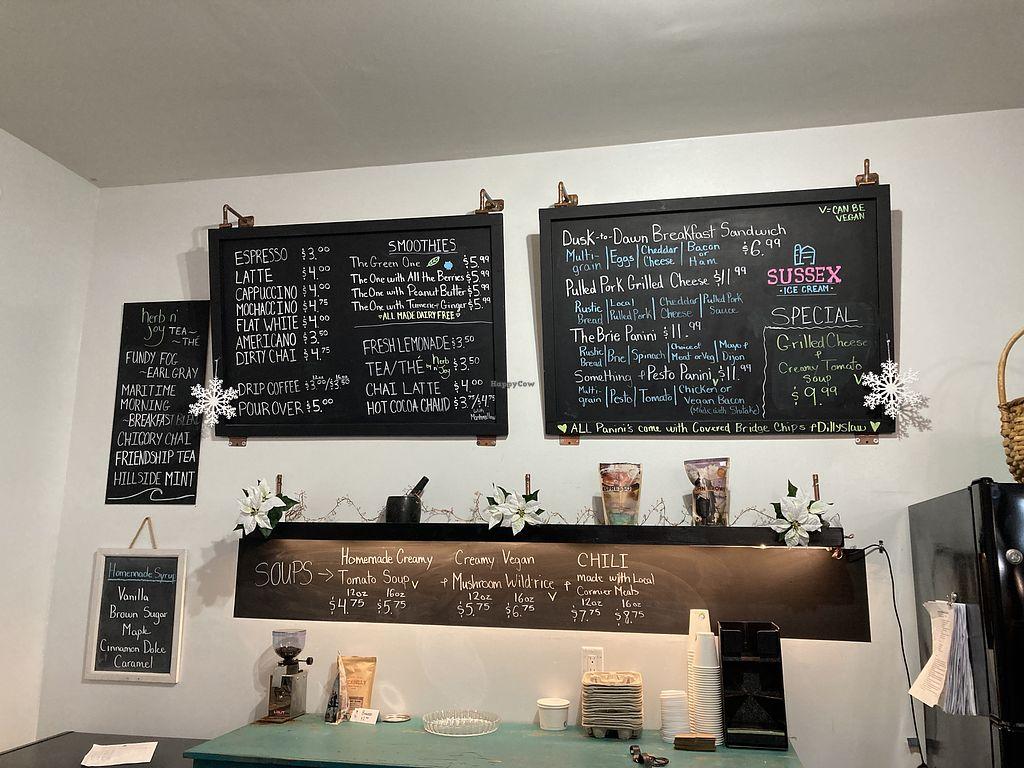 herb n'
joy TEA~
~THÉ
FUNDY FOG
~EARL GRAY
MARITIME
MORNING
~BREAKFAST BLEND
CHICORY CHAI
FRIENDSHIP TEA
HILLSIDE MINT
Homemade Syrup
Vanilla
Brown Sugar
Maple
Cinnamon Dolce
Caramel
ESPRESSO $3.00
LATTE $4.00
CAPPUCCINO $4.00
MOCHACCINO $4.75
FLAT WHITE $4.00
AMERICANO $3.50
DIRTY CHAI $4.75
DRIP COFFEE
POUR OVER $5.00
SMOOTHIES
The Green One $5.99
The One with All the Berries $5.99
The One with Peanut Butter $5.99
The One with Tumeric + Ginger $5.99
ALL MADE DAIRY FREE
FRESH LEMONADE $3.50
TEA/THÉ by herb n' joy $3.50
CHAI LATTE $4.00
HOT COCOA CHAUD $3.75/$4.75
HappyCow
V=CAN BE
VEGAN
Dusk-to-Dawn Breakfast Sandwich
$6.99
Multi-grain | Eggs | Cheddar Cheese | Bacon or Ham
Pulled Pork Grilled Cheese $11.99
Rustic Bread | Local Pulled Pork | Cheddar Cheese | Pulled Pork Sauce
The Brie Panini $11.99
Rustic Bread | Brie | Spinach | Choice of Meat or Veg | Mayo + Dijon
Something + Pesto Panini V $11.99
Multi-grain | Pesto | Tomato | Chicken or Vegan Bacon
(Made with Shitake)
ALL Panini's come with Covered Bridge Chips + Dillyslaw
SUSSEX
ICE CREAM
SPECIAL
Grilled Cheese
+
Creamy Tomato
Soup V
$9.99
ESPRESSO
SOUPS → Homemade Creamy
Tomato Soup V
12oz 16oz
$4.75 $5.75
+ Creamy Vegan
Mushroom Wild rice V
12oz 16oz
$5.75 $6.75
+ CHILI
made with Local
Cormier Meats
12oz 16oz
$7.75 $8.75